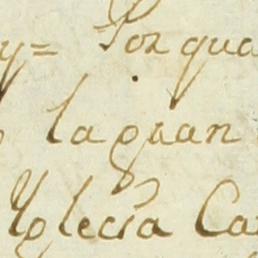 y= Por qua
la gran
Yglecia Ca